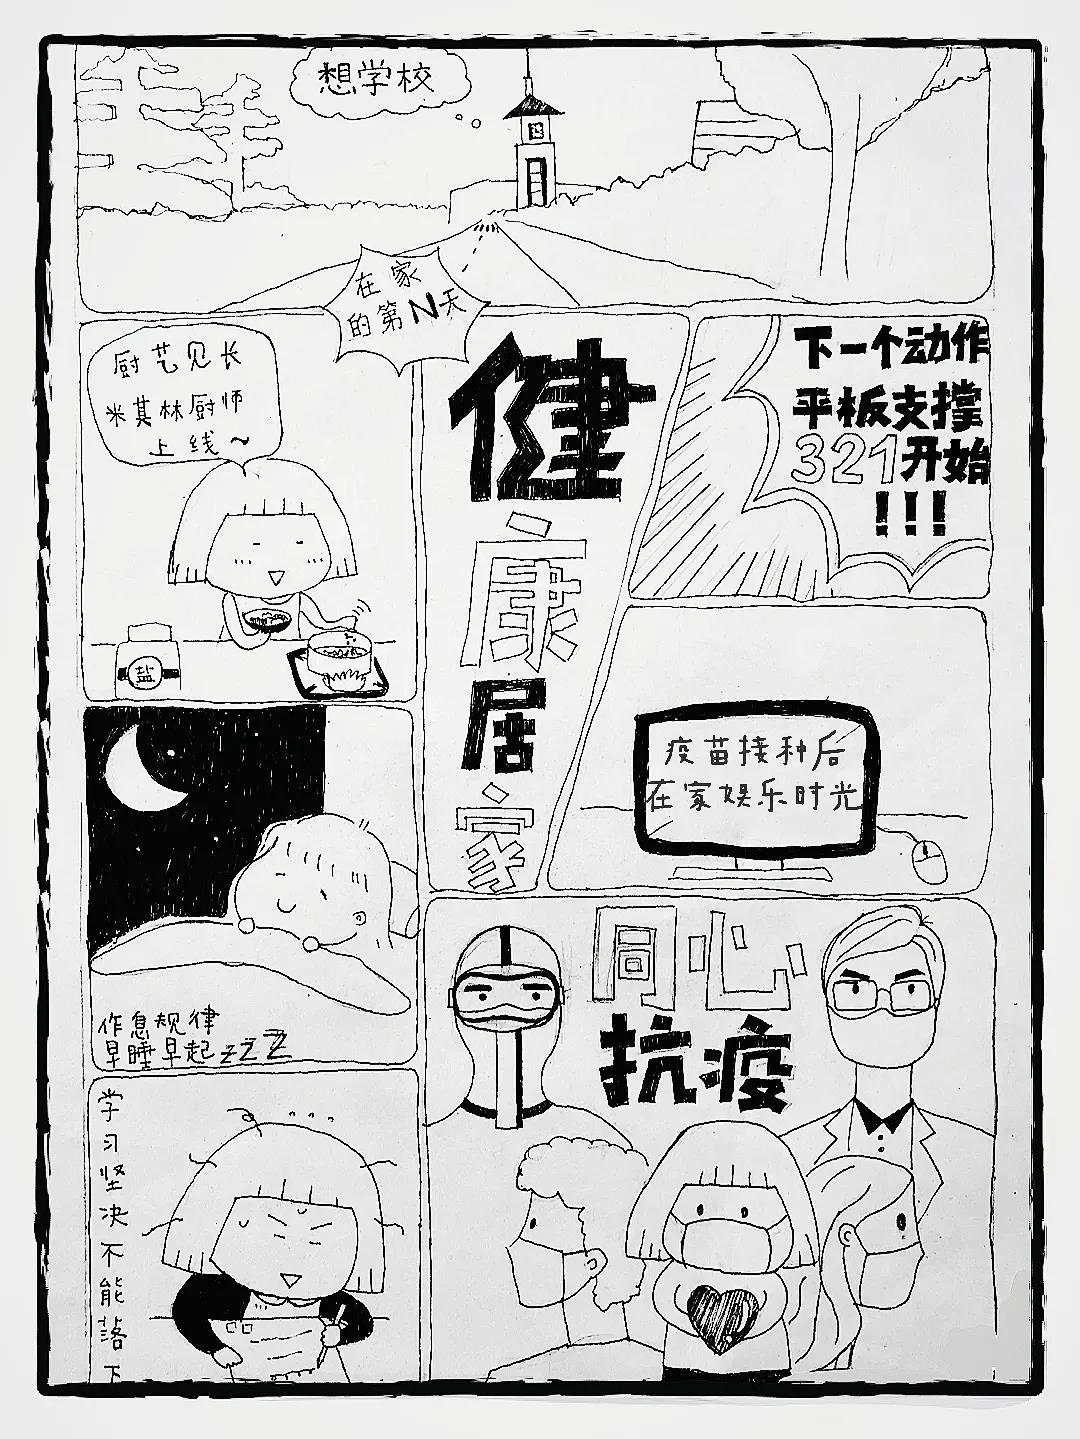 想学校
在家
的第N天
厨艺见长
米其林厨师
上线~
盐
健
康
居
家
下一个动作
平板支撑
321开始
!!!
疫苗接种后
在家娱乐时光
作息规律
早睡早起zzZ
同心
抗疫
学习坚决不能落下